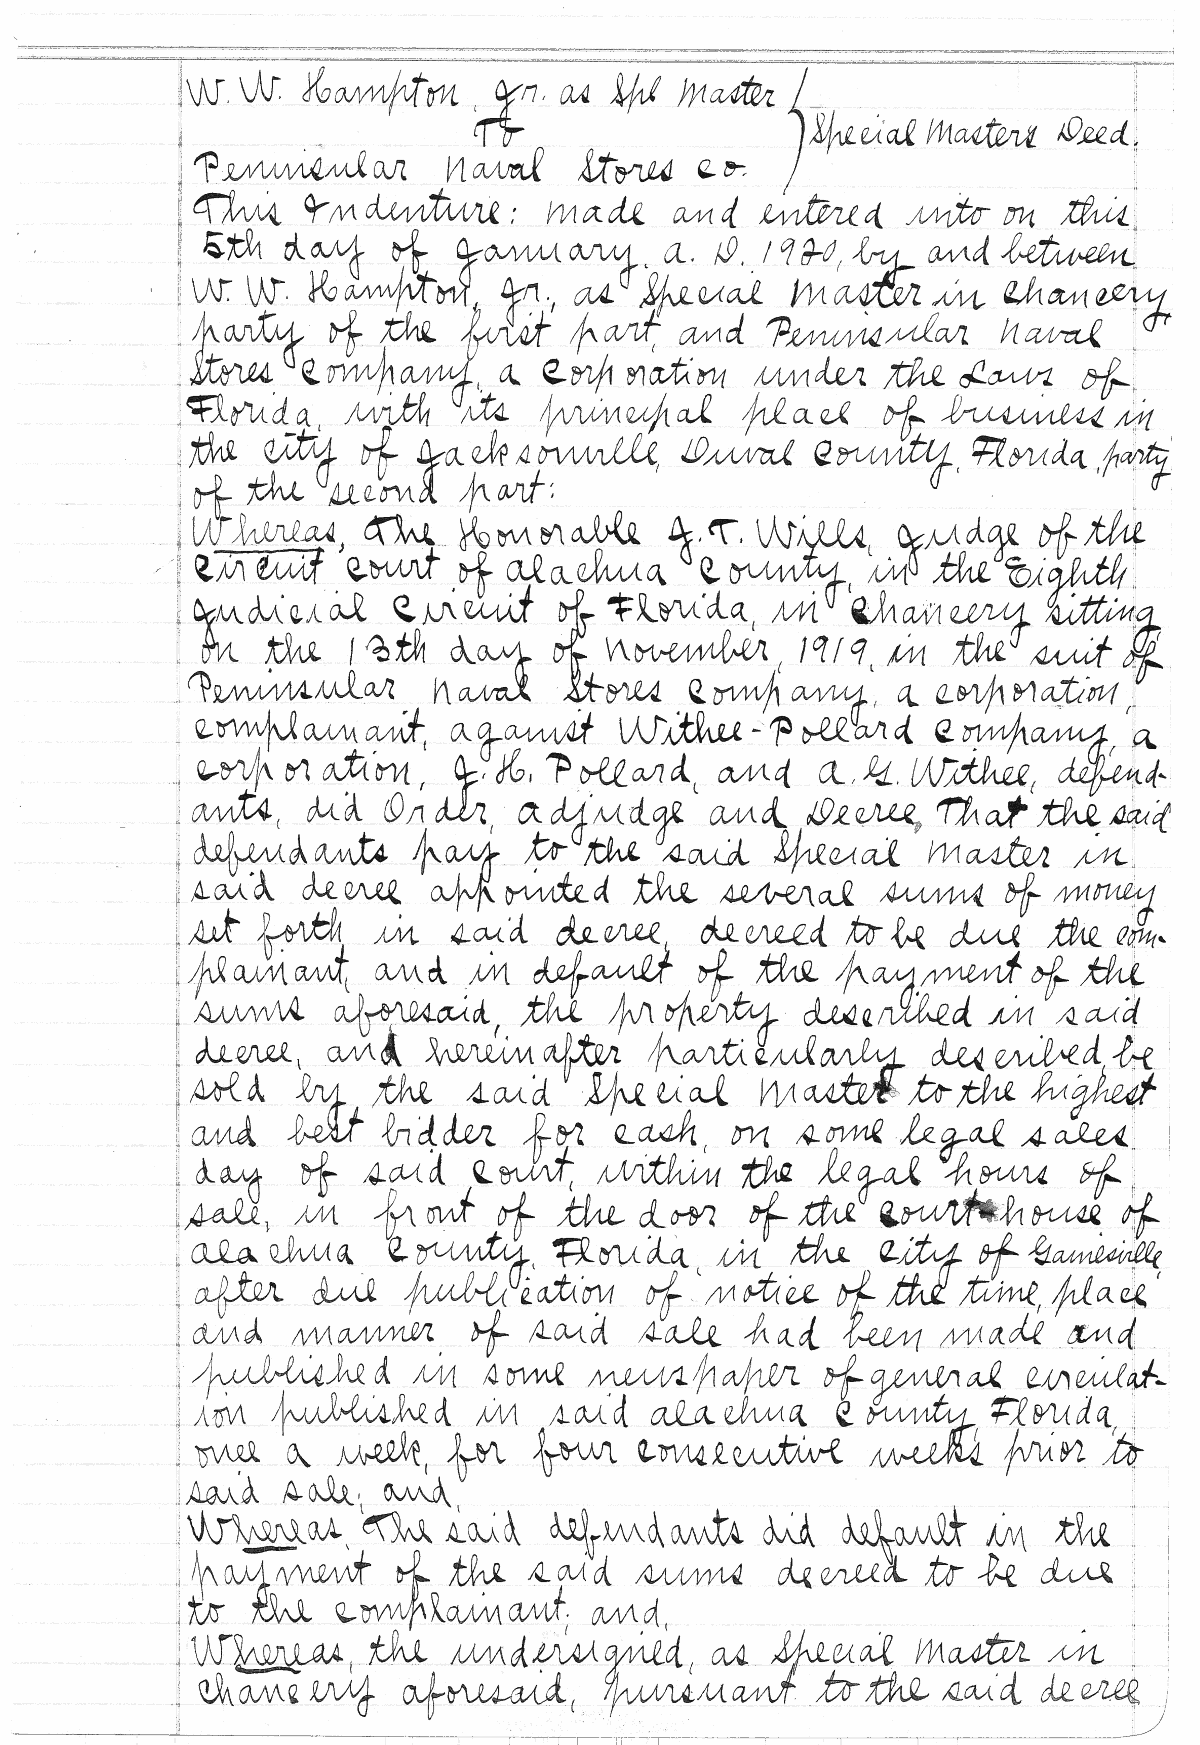 W. W. Hampton, Jr. as Spl Master
To
Special Masters Deed.
Peninsular Naval Stores Co.
This Indenture: Made and entered into on this
5th day of January, A. D. 1920, by and between
W. W. Hampton, Jr., as Special Master in Chancery,
party of the first part, and Peninsular Naval
Stores Company, a Corporation under the Laws of
Florida, with its principal place of business in
the City of Jacksonville, Duval County, Florida, party
of the second part:
Whereas, The Honorable J. T. Wills, Judge of the
Circuit Court of Alachua County, in the Eighth
Judicial Circuit of Florida, in Chancery sitting
on the 13th day of November, 1919, in the suit of
Peninsular Naval Stores Company, a corporation,
complainant, against Withee-Pollard Company, a
corporation, J. H. Pollard, and A. G. Withee, defend-
ants, did Order, Adjudge and Decree, That the said
defendants pay to the said Special Master in
said decree appointed the several sums of money
set forth in said decree, decreed to be due the com-
plainant, and in default of the payment of the
sums aforesaid, the property described in said
decree, and hereinafter particularly described, be
sold by the said Special Master to the highest
and best bidder for cash, on some legal sales
day of said Court, within the legal hours of
sale, in front of the door of the Court-house of
Alachua County, Florida, in the City of Gainesville,
after due publication of notice of the time, place
and manner of said sale had been made and
published in some newspaper of general circulat-
ion published in said Alachua County, Florida,
once a week, for four consecutive weeks prior to
said sale; and,
Whereas, The said defendants did default in the
payment of the said sums decreed to be due
to the complainant; and,
Whereas, the undersigned, as Special Master in
Chancery aforesaid, pursuant to the said decree